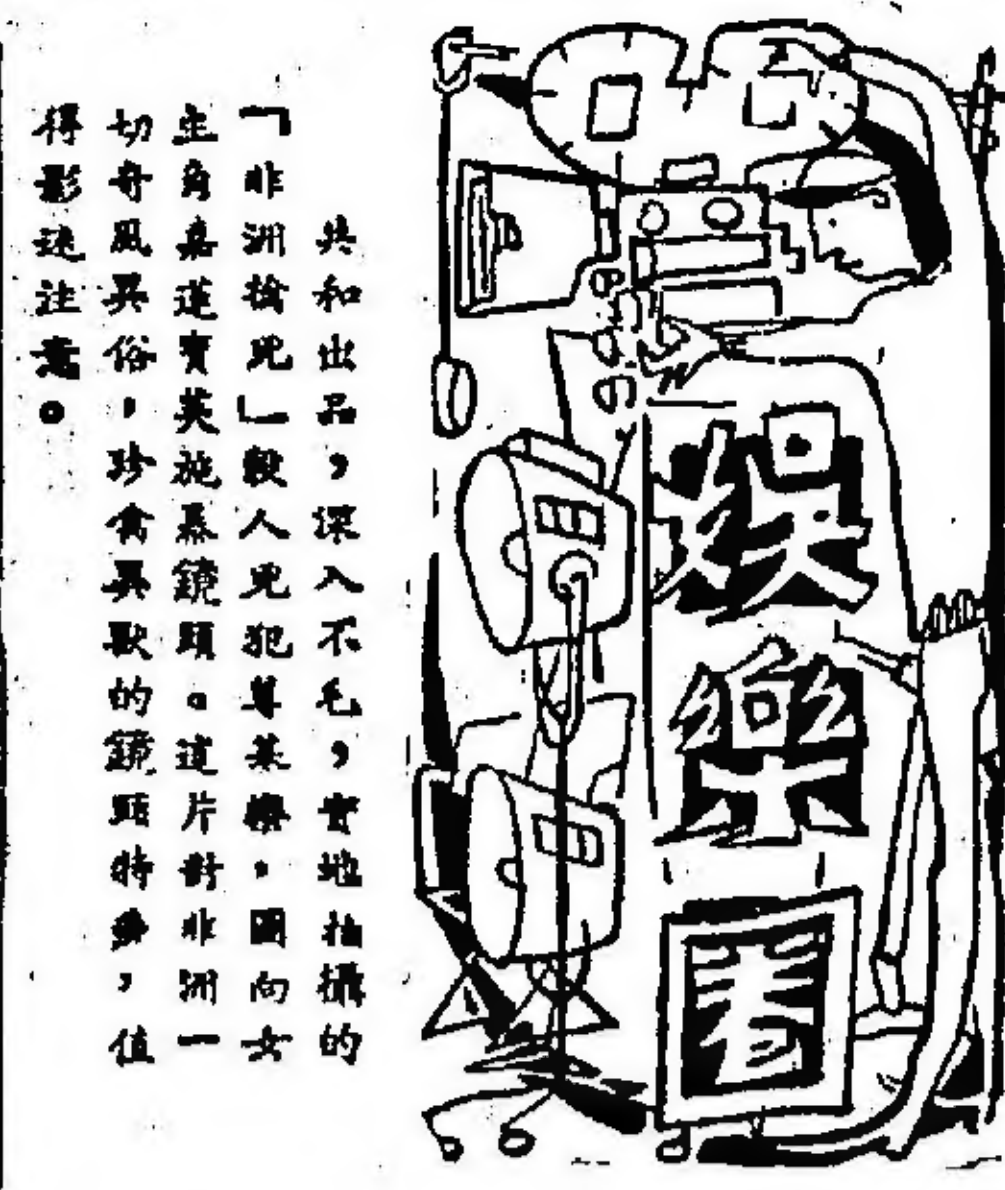 娛樂圈
共和出品，深入不毛，實地拍攝的
「非洲擒兇」殺人兇犯尊萊德，圖向女
主角嘉蓮寶英施熹鏡頭。這片對非洲一
切奇風異俗，珍禽異獸的鏡頭特多，值
得影迷注意。